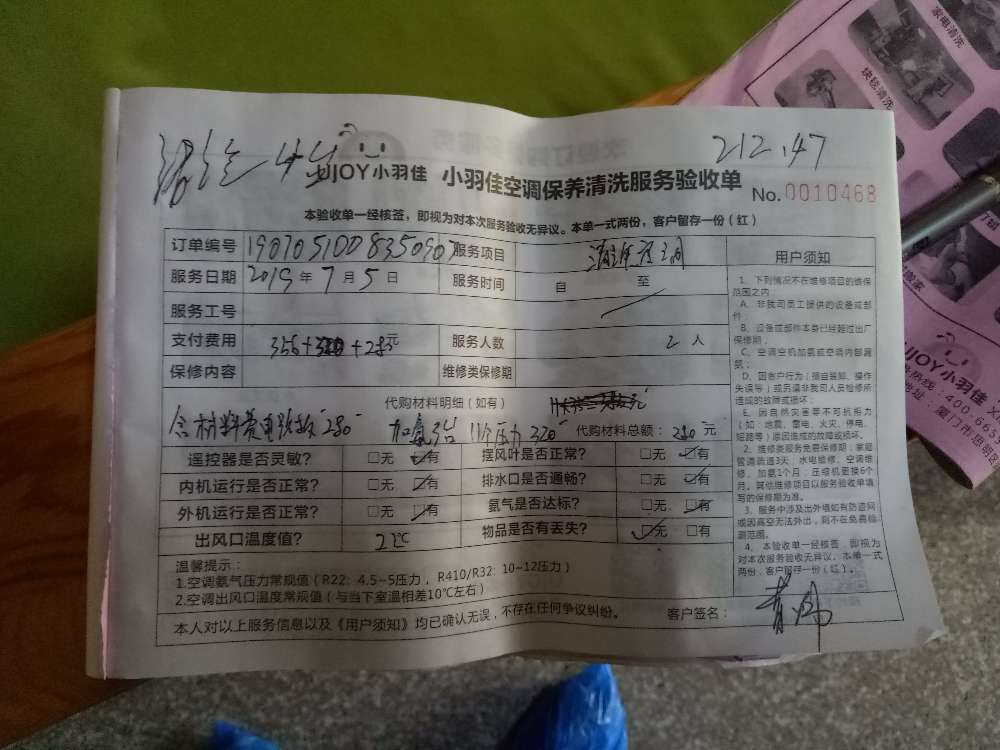 212.47
JOY小羽佳 小羽佳空调保养清洗服务验收单
No.0010468
本验收单一经核签，即视为对本次服务验收无异议。本单一式两份，客户留存一份（红）
订单编号 服务项目
服务日期 2019 年 7 月 5 日 服务时间 自 至
服务工号
支付费用 服务人数 2 人
保修内容 维修类保修期
代购材料明细（如有）
含材料费 280 加氨 压力 320 代购材料总额： 280 元
遥控器是否灵敏？ 无 有 摆风叶是否正常？ 无 有
内机运行是否正常？ 无 有 排水口是否通畅？ 无 有
外机运行是否正常？ 无 有 氨气是否达标？ 无 有
出风口温度值？ 22℃ 物品是否有丢失？ 无 有
温馨提示：
1.空调氨气压力常规值（R22: 4.5~5压力，R410/R32: 10~12压力）
2.空调出风口温度常规值（与当下室温相差10℃左右）
本人对以上服务信息以及《用户须知》均已确认无误，不存在任何争议纠纷。 客户签名：
用户须知
1、下列情况不在维修项目的维保
范围之内：
A、非我司员工提供的设备或部
件；
B、设备或部件本身已经超过出厂
保修期；
C、空调空机加氨或空调内部漏
氨；
D、因客户行为（擅自装卸、操作
失误等）或另请非我司人员检修所
造成的故障或损坏；
E、因自然灾害等不可抗拒力
（如：地震、雷电、火灾、停电、
短路等）原因造成的故障或损坏。
2、维修类服务免费保修期：家庭
管道疏通3天；水电维修、空调维
修、加氨1个月；压缩机更换6个
月。其他维修项目以服务验收单填
写的保修期为准。
3、服务中涉及出外墙如有防盗网
或因高空无法外出，则不在免费检
测范围。
4、本验收单一经核签，即视为
对本次服务验收无异议。本单一式
两份，客户留存一份（红）。
家电清洗
块毯清洗
JOY小羽佳
热线：400-665
地址：厦门市思明区